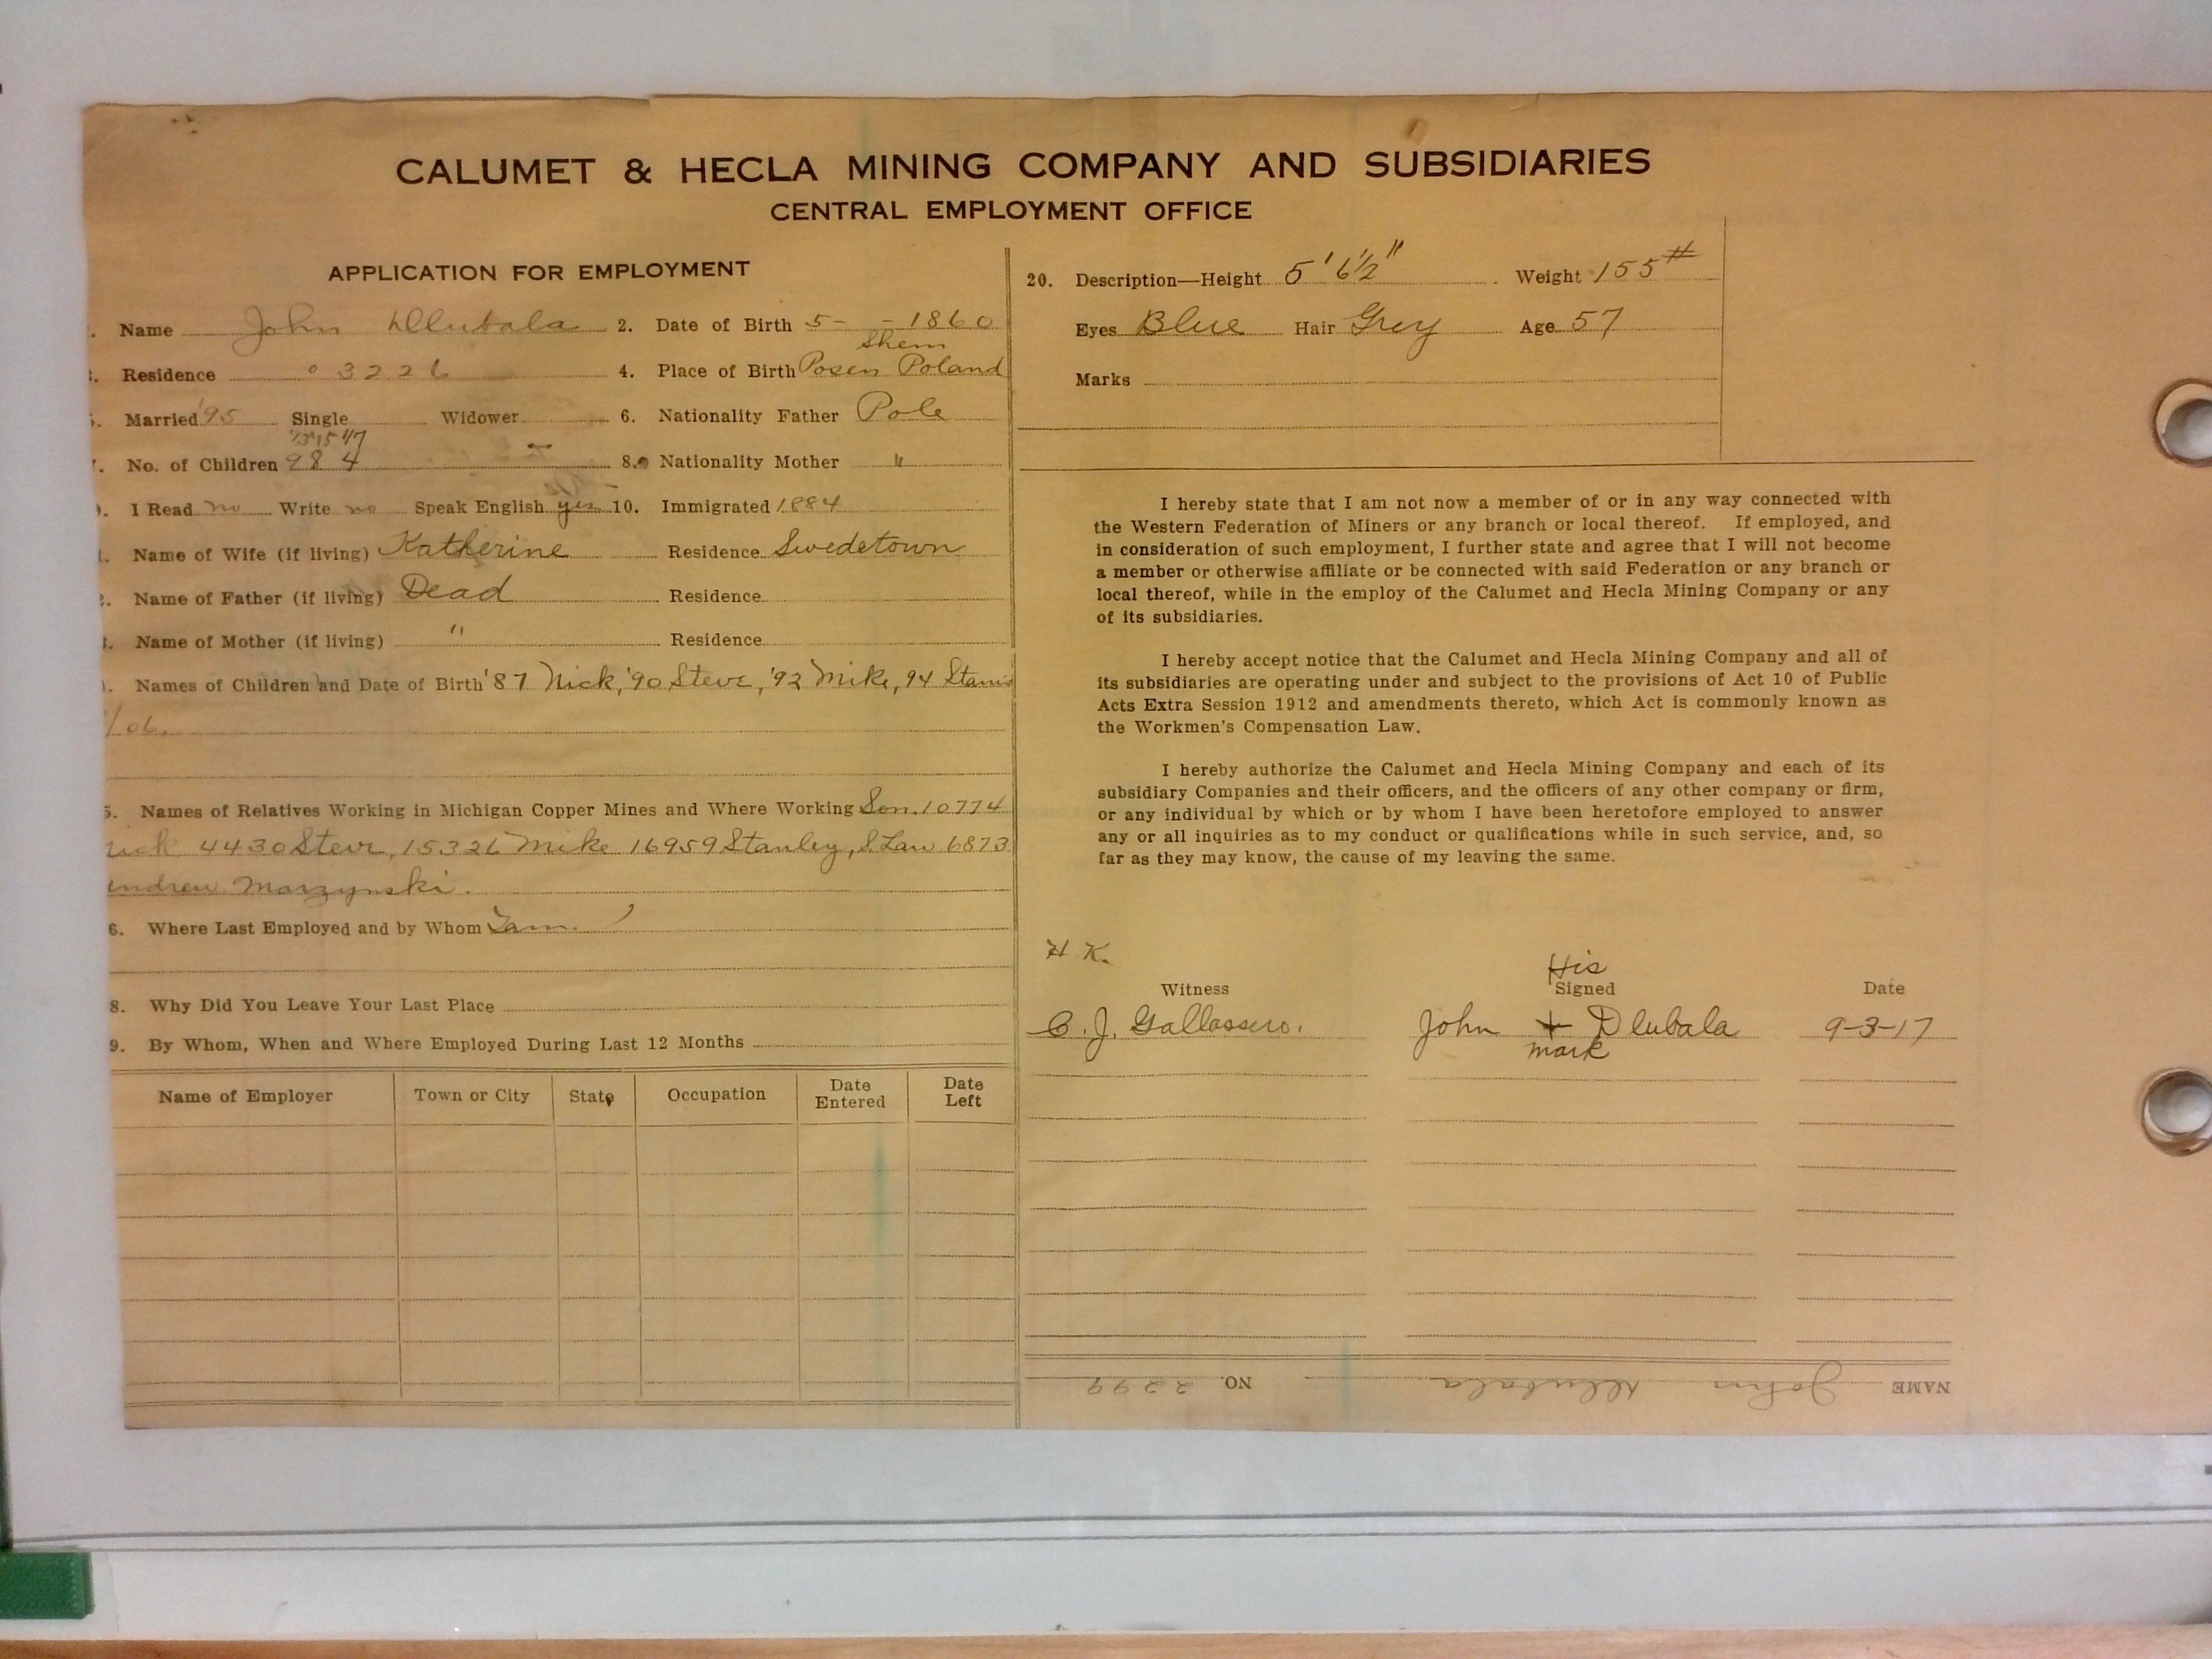 CALUMET & HECLA MINING COMPANY AND SUBSIDIARIES
CENTRAL EMPLOYMENT OFFICE
APPLICATION FOR EMPLOYMENT
Name John Dlubala 2. Date of Birth 5- - 1860
Residence 3226 4. Place of Birth Posen Poland
Married '95 Single Widower 6. Nationality Father Pole
'13 '15 '17
No. of Children 9 8 4 8. Nationality Mother "
I Read no Write no Speak English yes 10. Immigrated 1884
Name of Wife (if living) Katherine Residence Swedetown
Name of Father (if living) Dead Residence
Name of Mother (if living) " Residence
Names of Children and Date of Birth '87 Nick, '90 Steve, '92 Mike, 94 Stanis
/06.
5. Names of Relatives Working in Michigan Copper Mines and Where Working Son. 10774
Nick 4430 Steve, 15326 Mike 16959 Stanley, S. Law 6873
Andrew Marzynski.
6. Where Last Employed and by Whom
8. Why Did You Leave Your Last Place
9. By Whom, When and Where Employed During Last 12 Months
Name of Employer Town or City State Occupation Date Entered Date Left
20. Description—Height 5' 6½" Weight 155#
Eyes Blue Hair Grey Age 57
Marks
I hereby state that I am not now a member of or in any way connected with
the Western Federation of Miners or any branch or local thereof. If employed, and
in consideration of such employment, I further state and agree that I will not become
a member or otherwise affiliate or be connected with said Federation or any branch or
local thereof, while in the employ of the Calumet and Hecla Mining Company or any
of its subsidiaries.
I hereby accept notice that the Calumet and Hecla Mining Company and all of
its subsidiaries are operating under and subject to the provisions of Act 10 of Public
Acts Extra Session 1912 and amendments thereto, which Act is commonly known as
the Workmen's Compensation Law.
I hereby authorize the Calumet and Hecla Mining Company and each of its
subsidiary Companies and their officers, and the officers of any other company or firm,
or any individual by which or by whom I have been heretofore employed to answer
any or all inquiries as to my conduct or qualifications while in such service, and, so
far as they may know, the cause of my leaving the same.
H K.
His
Witness Signed Date
C. J. Gallassero. John + Dlubala 9-3-17
mark
NAME John Dlubala NO. 2299